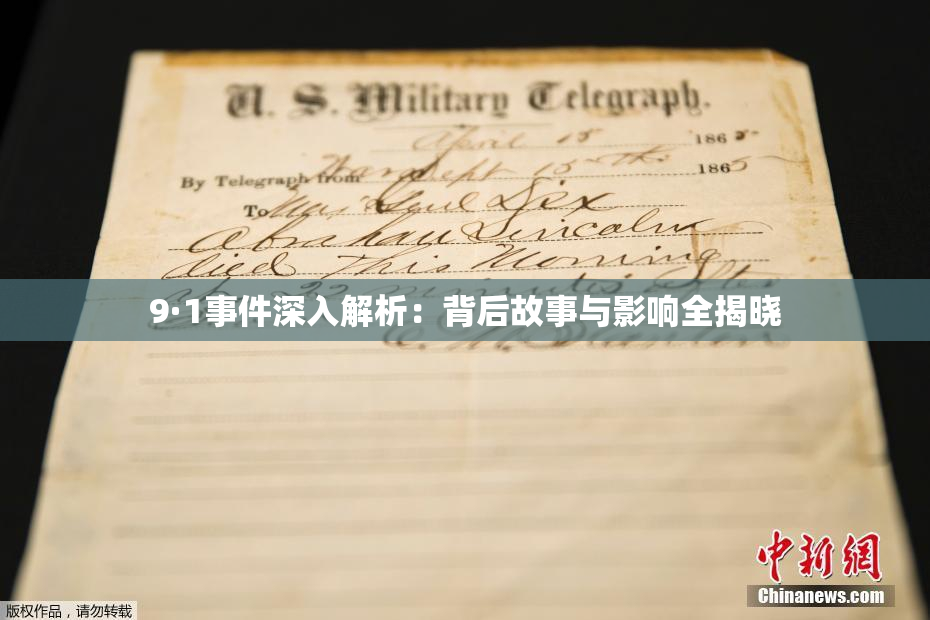 U. S. Military Telegraph.
April 15 1865
By Telegraph from War Dept 15th 1865
To Maj Genl Dix
Abraham Lincoln
died This Morning
9·1事件深入解析：背后故事与影响全揭晓
at 22 minutes after
E. M. Stanton
中新网
Chinanews.com
版权作品，请勿转载